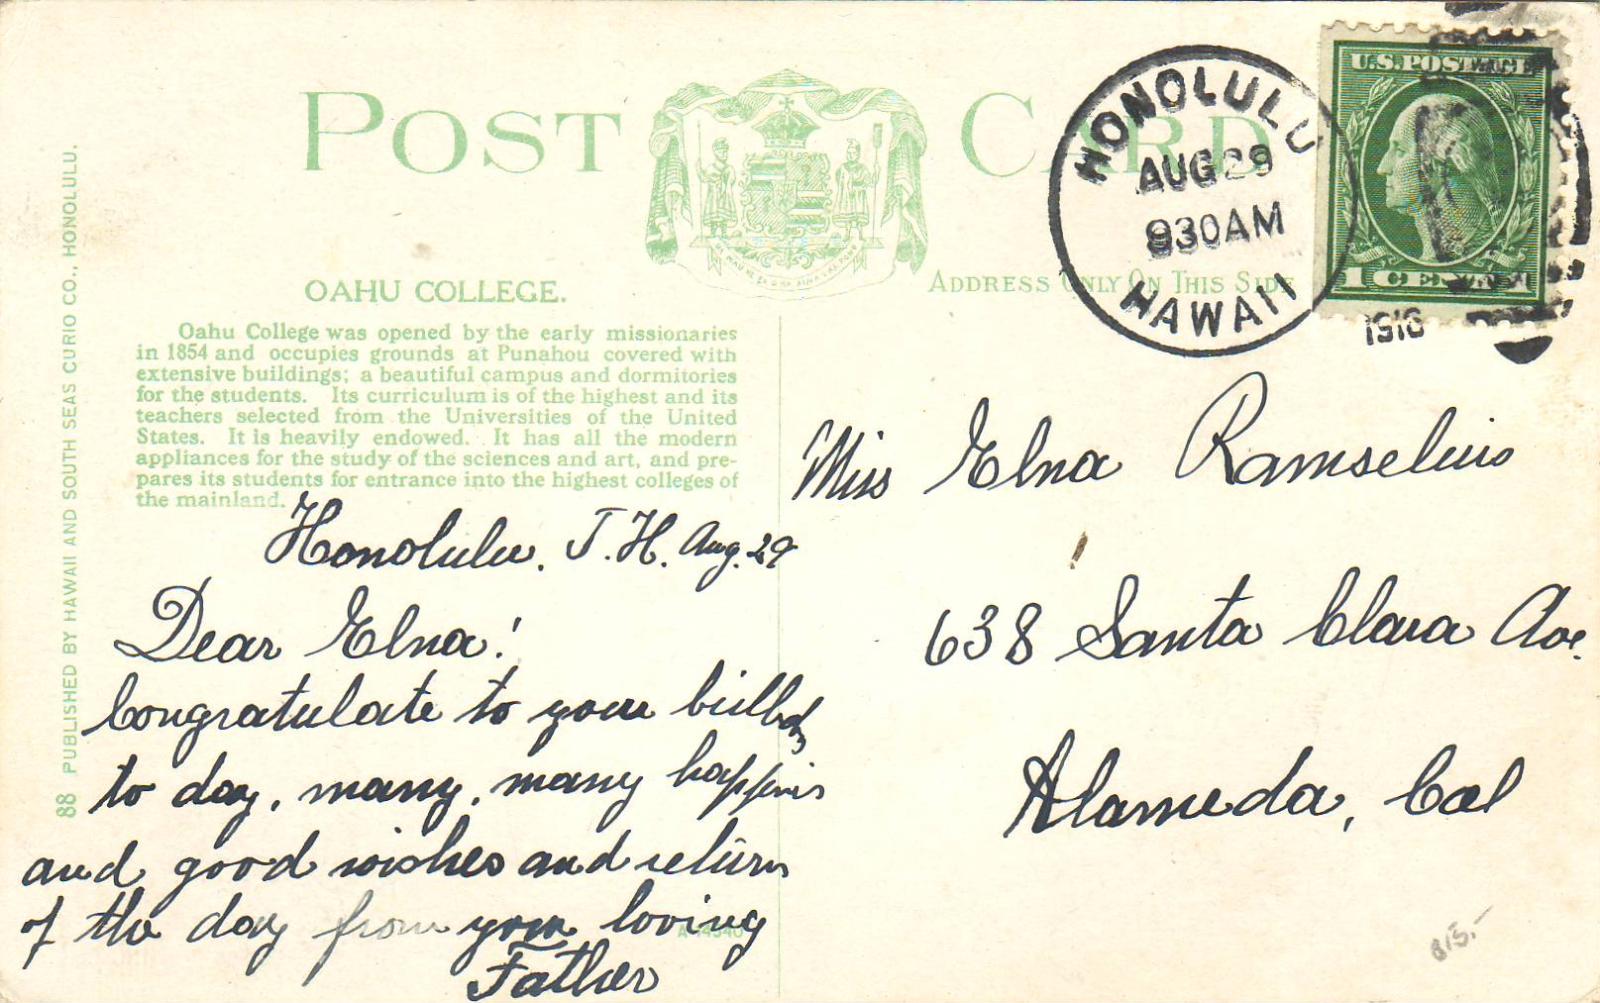 POST CARD
HONOLULU
AUG 29
930 AM
HAWAII
1916
U.S. POSTAGE
1 CENT
OAHU COLLEGE.
ADDRESS ONLY ON THIS SIDE
Oahu College was opened by the early missionaries
in 1854 and occupies grounds at Punahou covered with
extensive buildings; a beautiful campus and dormitories
for the students. Its curriculum is of the highest and its
teachers selected from the Universities of the United
States. It is heavily endowed. It has all the modern
appliances for the study of the sciences and art, and pre-
pares its students for entrance into the highest colleges of
the mainland.
88 PUBLISHED BY HAWAII AND SOUTH SEAS CURIO CO., HONOLULU.
Honolulu. T. H. Aug. 29
Dear Elna!
Congratulate to your
to day, many, many happines
and good wishes and return
of the day from your loving
Father
Miss Elna Ramselius
638 Santa Clara Ave.
Alameda, Cal